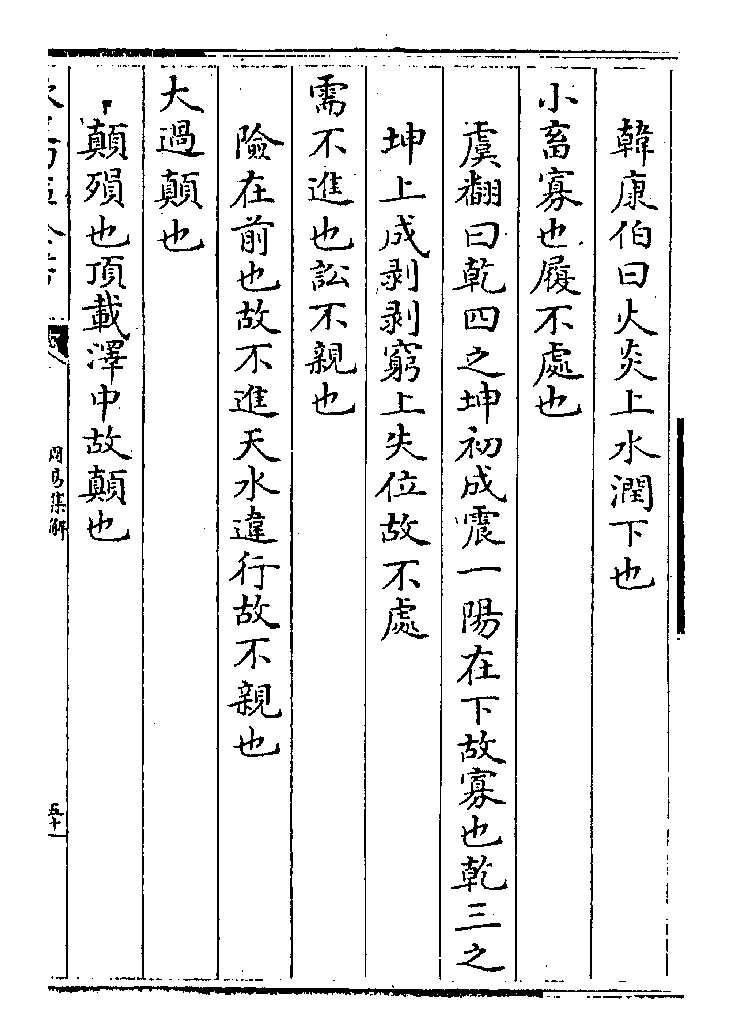 韓康伯曰火炎上水潤下也
小畜寡也履不處也
虞翻曰乾四之坤初成震一陽在下故寡也乾三之
坤上成剥剥窮上失位故不處
需不進也訟不親也
險在前也故不進天水違行故不親也
大過顛也
顛殞也頂載澤中故顛也
周易集解
五十一